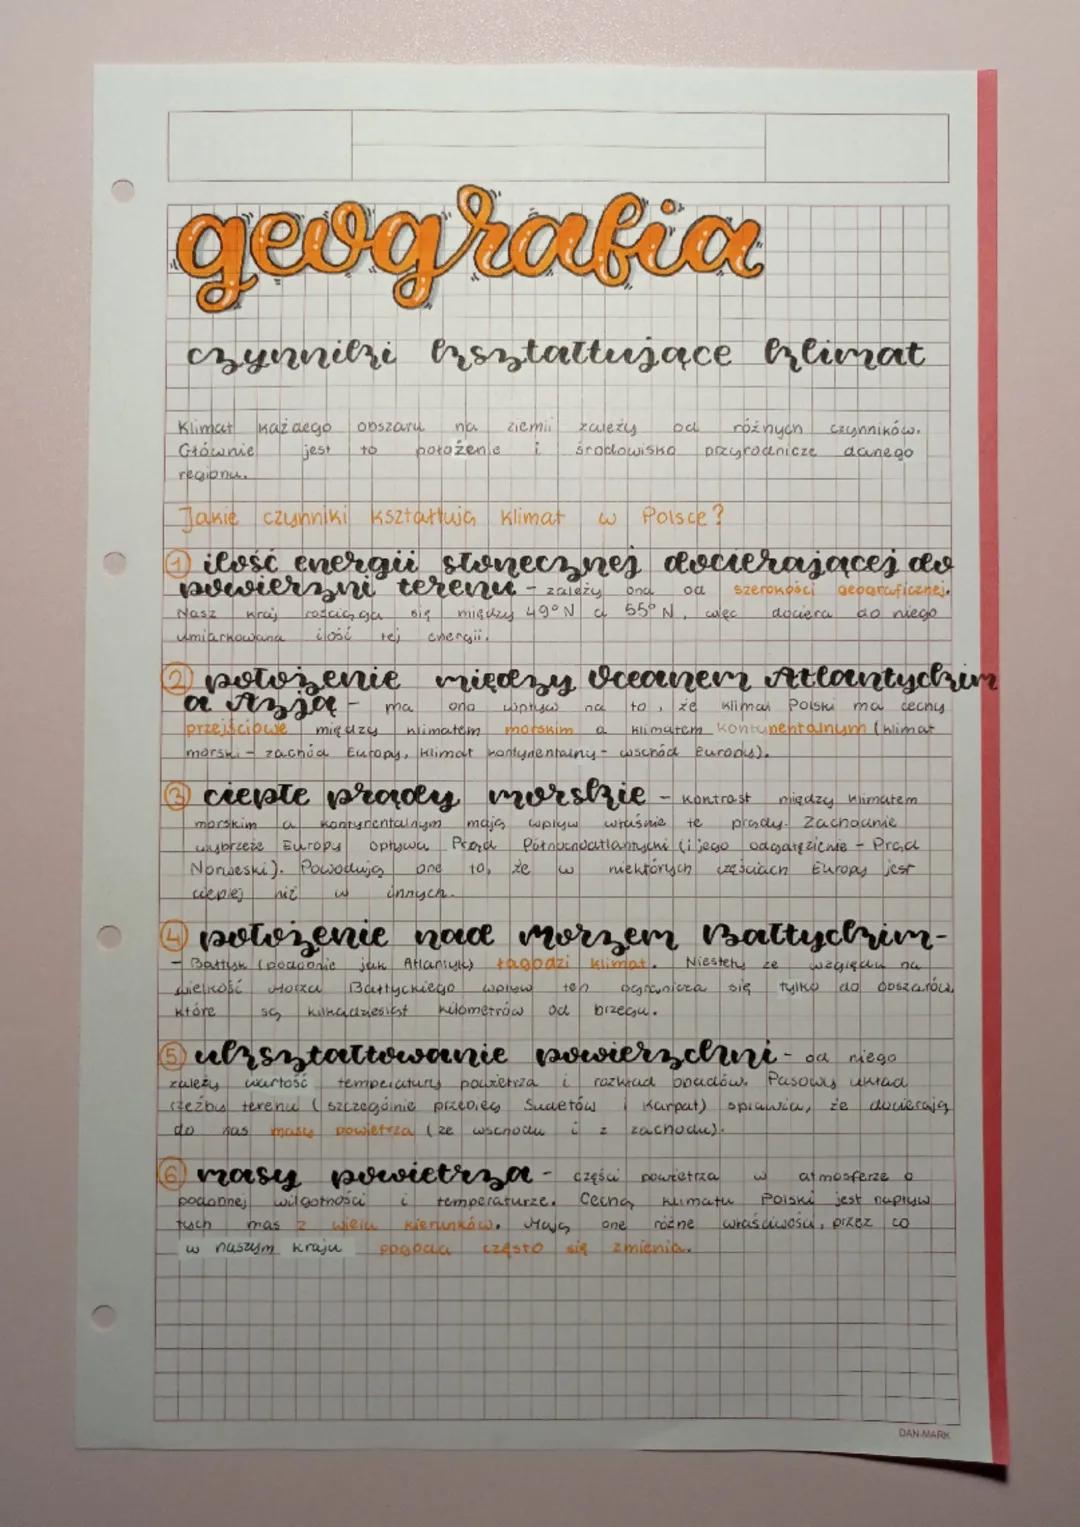 geografia
czynniki kształtujące klimat
Klimat każdego obszaru na ziemii zależy od różnych czynników.
Głównie jest to położenie i środowisko przyrodnicze danego
regionu.
Jakie czynniki kształtują klimat w Polsce?
1 ilość energii słonecznej docierającej do
powierzni terenu - zależy ona od szerokości geograficznej.
Nasz kraj rozciąga się między 49°N a 55°N, więc dociera do niego
umiarkowana ilość tej energii.
2 położenie między Oceanem Atlantyckim
a Azją - ma ono wpływ na to, że klimat Polski ma cechy
przejściowe między klimatem morskim a klimatem kontynentalnym (klimat
morski - zachód Europy, klimat kontynentalny - wschód Europy).
3 ciepłe prądy morskie - kontrast między klimatem
morskim a kontynentalnym mają wpływ właśnie te prądy. Zachodnie
wybrzeże Europy opływa Prąd Północnoatlantycki (i jego odgałęzienie - Prąd
Norweski). Powodują one to, że w niektórych częściach Europy jest
cieplej niż w innych.
4 położenie nad Morzem Bałtyckim-
- Bałtyk (podobnie jak Atlantyk) łagodzi klimat. Niestety ze względu na
wielkość Morza Bałtyckiego wpływ ten ogranicza się tylko do obszarów,
które są kilkadziesiąt kilometrów od brzegu.
5 ukształtowanie powierzchni - od niego
zależy wartość temperatury powietrza i rozkład opadów. Pasowy układ
rzeźby terenu (szczególnie przebieg Sudetów i Karpat) sprawia, że docierają
do nas masy powietrza (ze wschodu i z zachodu).
6 masy powietrza - części powietrza w atmosferze o
podobnej wilgotności i temperaturze. Cechą klimatu Polski jest napływ
tych mas z wielu kierunków. Mają one różne właściwości, przez co
w naszym kraju pogoda często się zmienia.
DAN-MARK